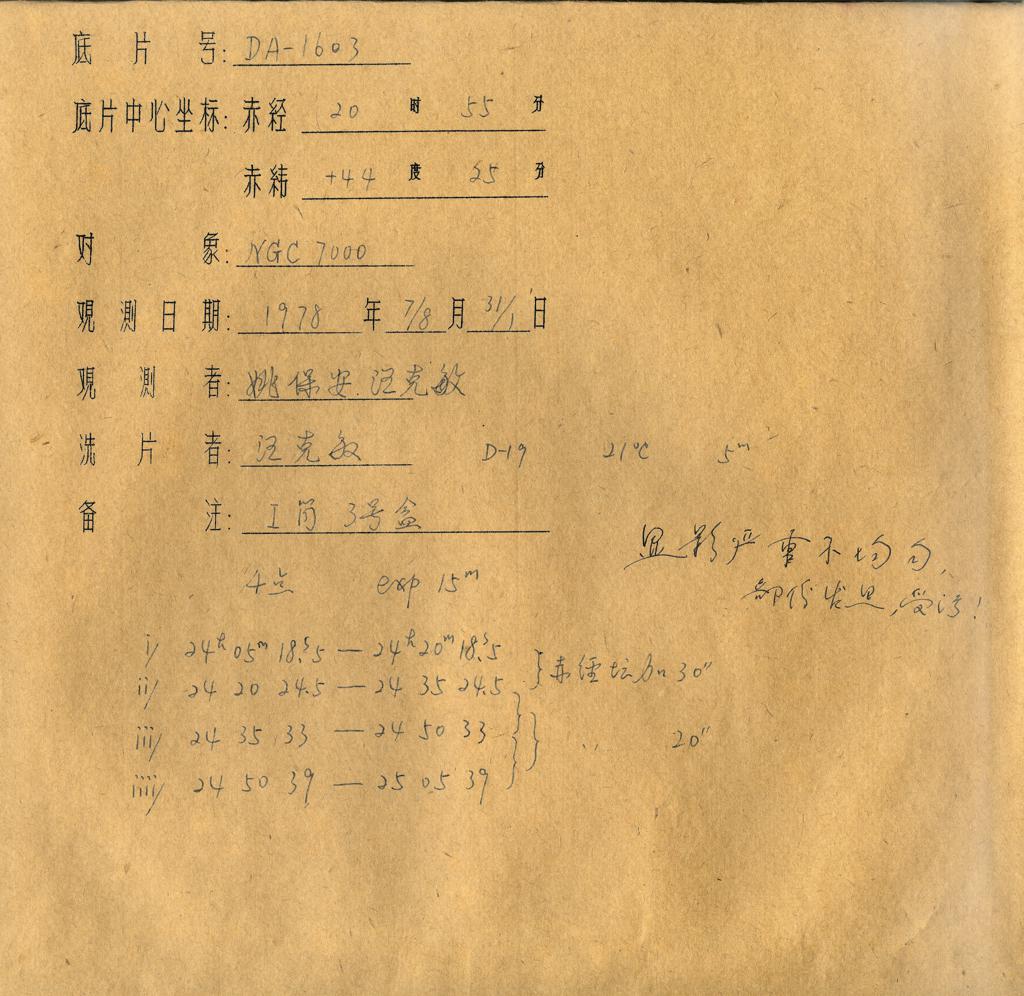 底片号: DA-1603
底片中心坐标: 赤经 20 时 55 分
赤纬 +44 度 25 分
对象: NGC 7000
观测日期: 1978 年 7/8 月 31/1 日
观测者: 姚保安 汪克敏
洗片者: 汪克敏 D-19 21°C 5ᵐ
备注: I筒 3号盒
显影严重不均匀,
部份发黑,受污!
4点 exp 15ᵐ
i) 24ʰ05ᵐ18ˢ.5 — 24ʰ20ᵐ18ˢ.5
ii) 24 20 24.5 — 24 35 24.5 } 赤经 30"
iii) 24 35 33 — 24 50 33
iiii) 24 50 39 — 25 05 39 } 〃 20"